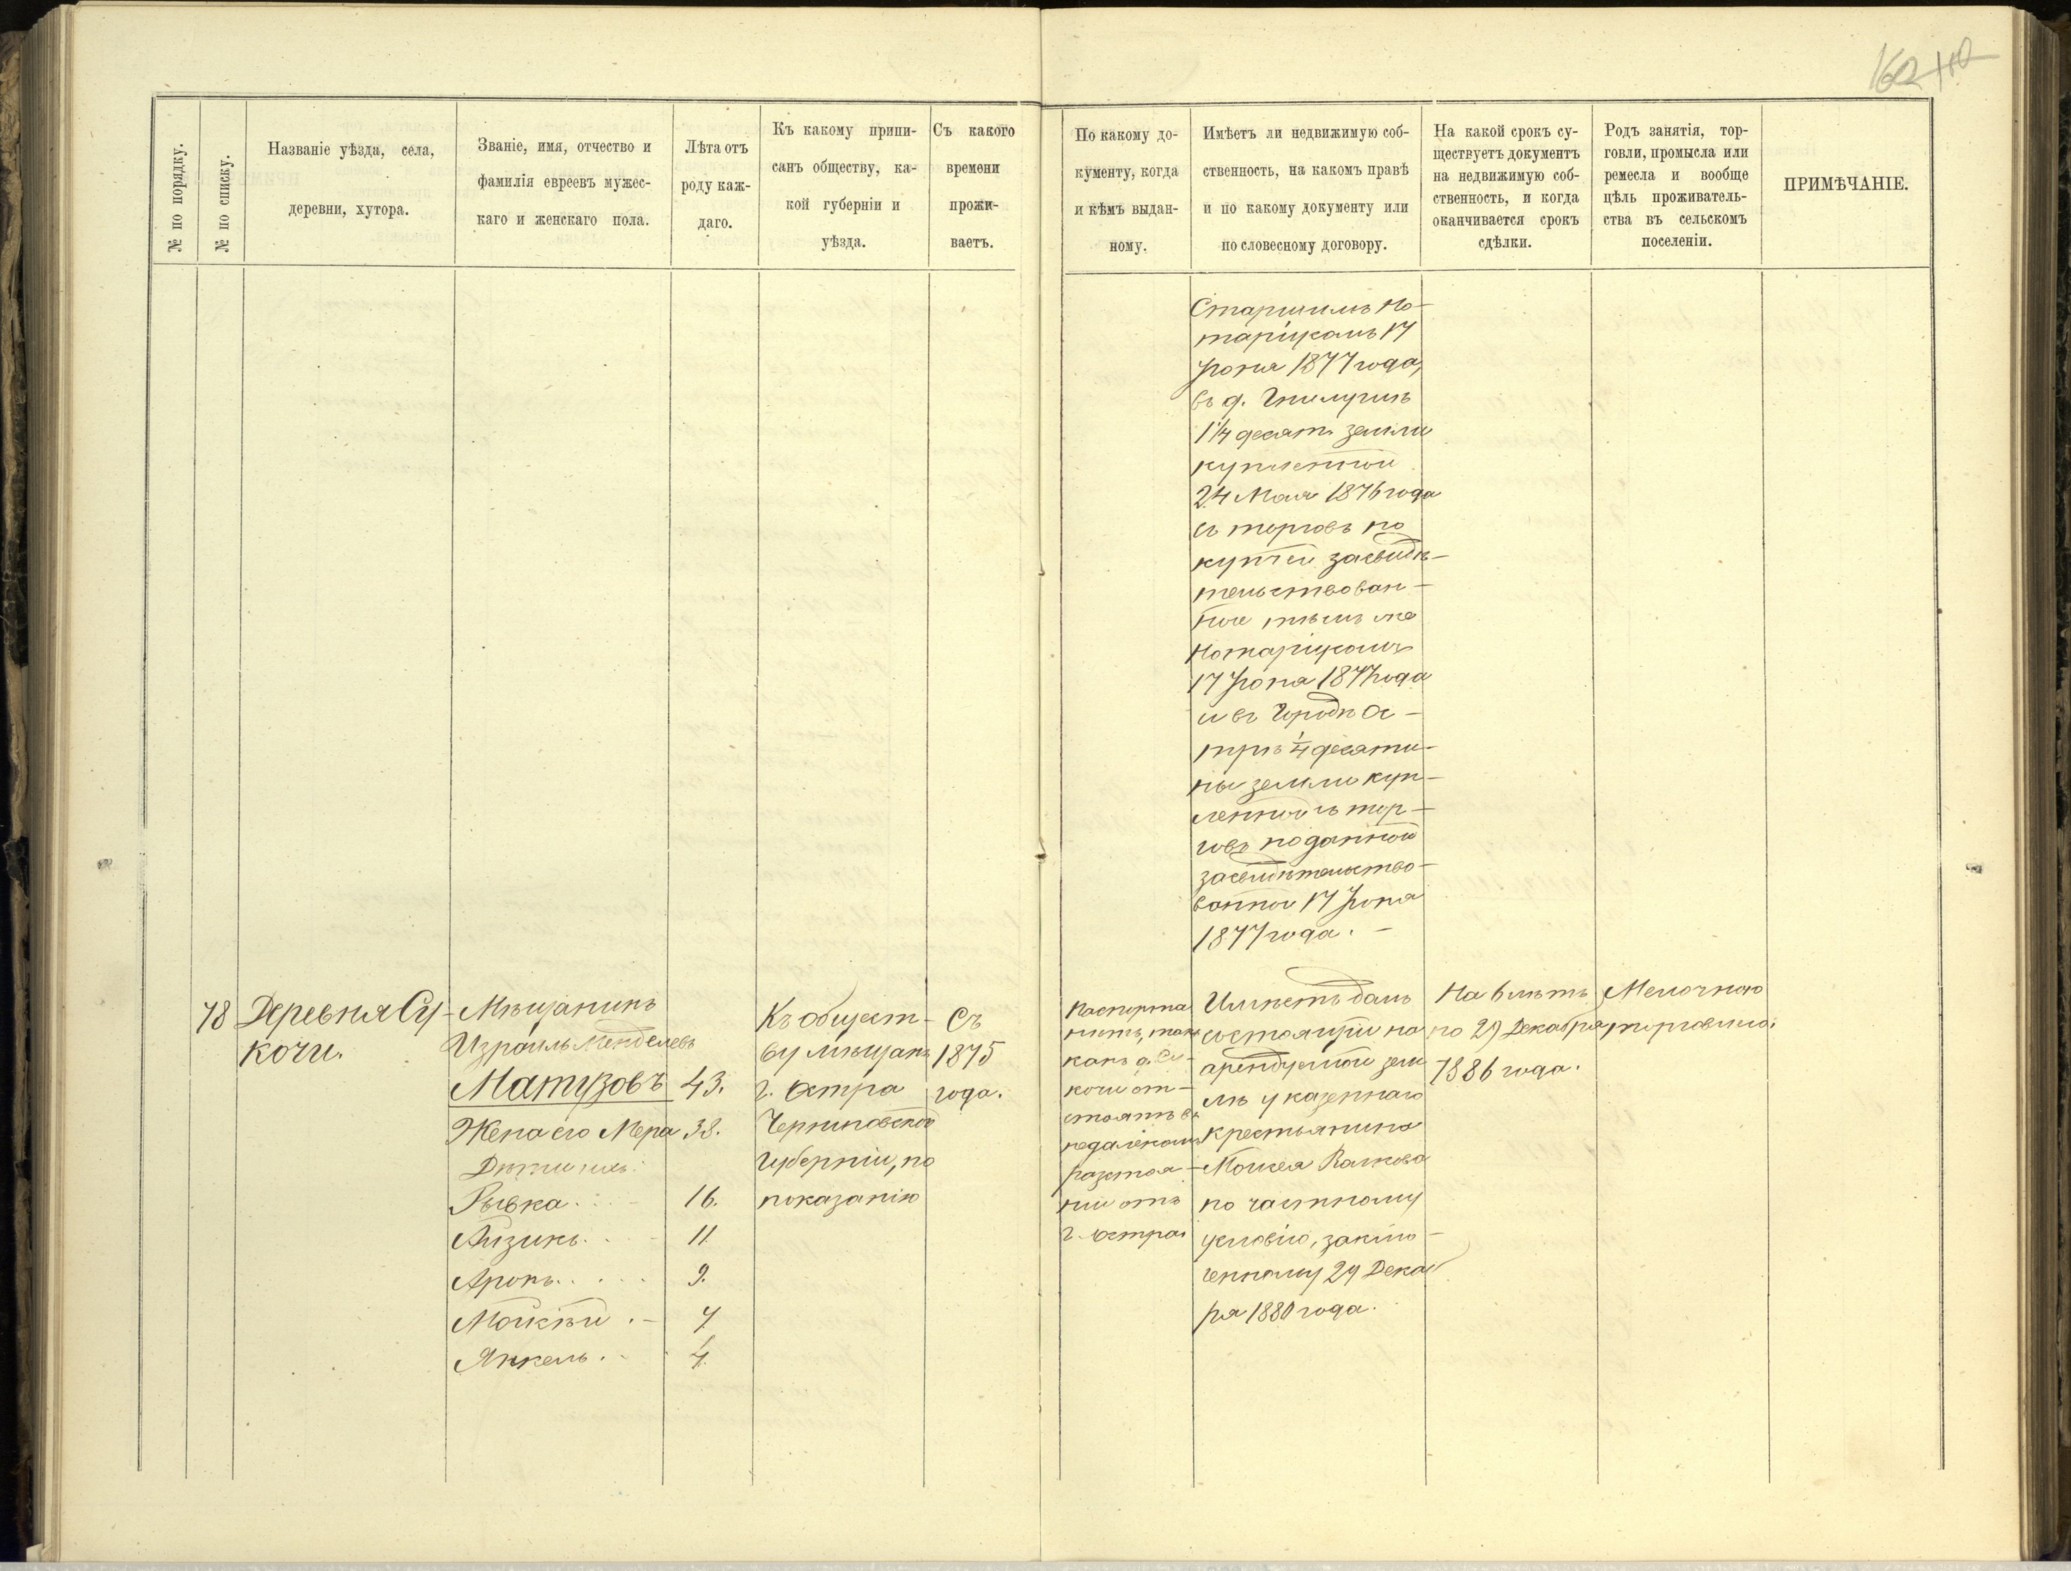 № по порядку.
№ по списку.
Названіе уѣзда, села,
деревни, хутора.
Званіе, имя, отчество и
фамилія евреевъ мужес-
каго и женскаго пола.
Лѣта отъ
роду каж-
даго.
Къ какому припи-
санъ обществу, ка-
кой губерніи и
уѣзда.
Съ какого
времени
прожи-
ваетъ.
По какому до-
кументу, когда
и кѣмъ выдан-
ному.
Имѣетъ ли недвижимую соб-
ственность, на какомъ правѣ
и по какому документу или
по словесному договору.
На какой срокъ су-
ществуетъ документъ
на недвижимую соб-
ственность, и когда
оканчивается срокъ
сдѣлки.
Родъ занятія, тор-
говли, промысла или
ремесла и вообще
цѣль проживатель-
ства въ сельскомъ
поселеніи.
ПРИМѢЧАНІЕ.
Старшимъ Но-
таріусомъ 17
Іюня 1877 года,
въ д.
1¼ десят. земли
купленной
24 Мая 1876 года
съ торговъ по
купчей засвидѣ-
тельствован-
ной тѣмъ же
Нотаріусомъ
17 Іюня 1877 года
и въ Городѣ Ос-
трѣ ¼ десяти-
ны земли куп-
ленной съ тор-
говъ по данной
засвидѣтельство-
ванной 17 Іюня
1877 года. –
78
Деревня Су-
кочи.
Мѣщанинъ
Израиль Менделевъ
Матузовъ 43.
Жена его Мера 38.
Дѣти ихъ:
Рывка 16.
Айзикъ 11
Аронъ 9.
Мойсѣй 7
Янкель 4.
Къ общест-
ву мѣщанъ
г. Остра
Черниговской
Губерніи, по
показанію
Съ
1875
года.
Паспорта
нѣтъ, такъ
какъ д. Су-
кочи от-
стоятъ въ
недалекомъ
разстоя-
ніи отъ
г. Остра
Имѣетъ домъ
состоящій на
арендуемой зем
лѣ у казеннаго
крестьянина
Мойсея Волкова
по частному
условію, заклю-
ченному 29 Декаб
ря 1880 года.
На 6 лѣтъ
по 29 Декабря
1886 года.
Мелочною
торговлею.